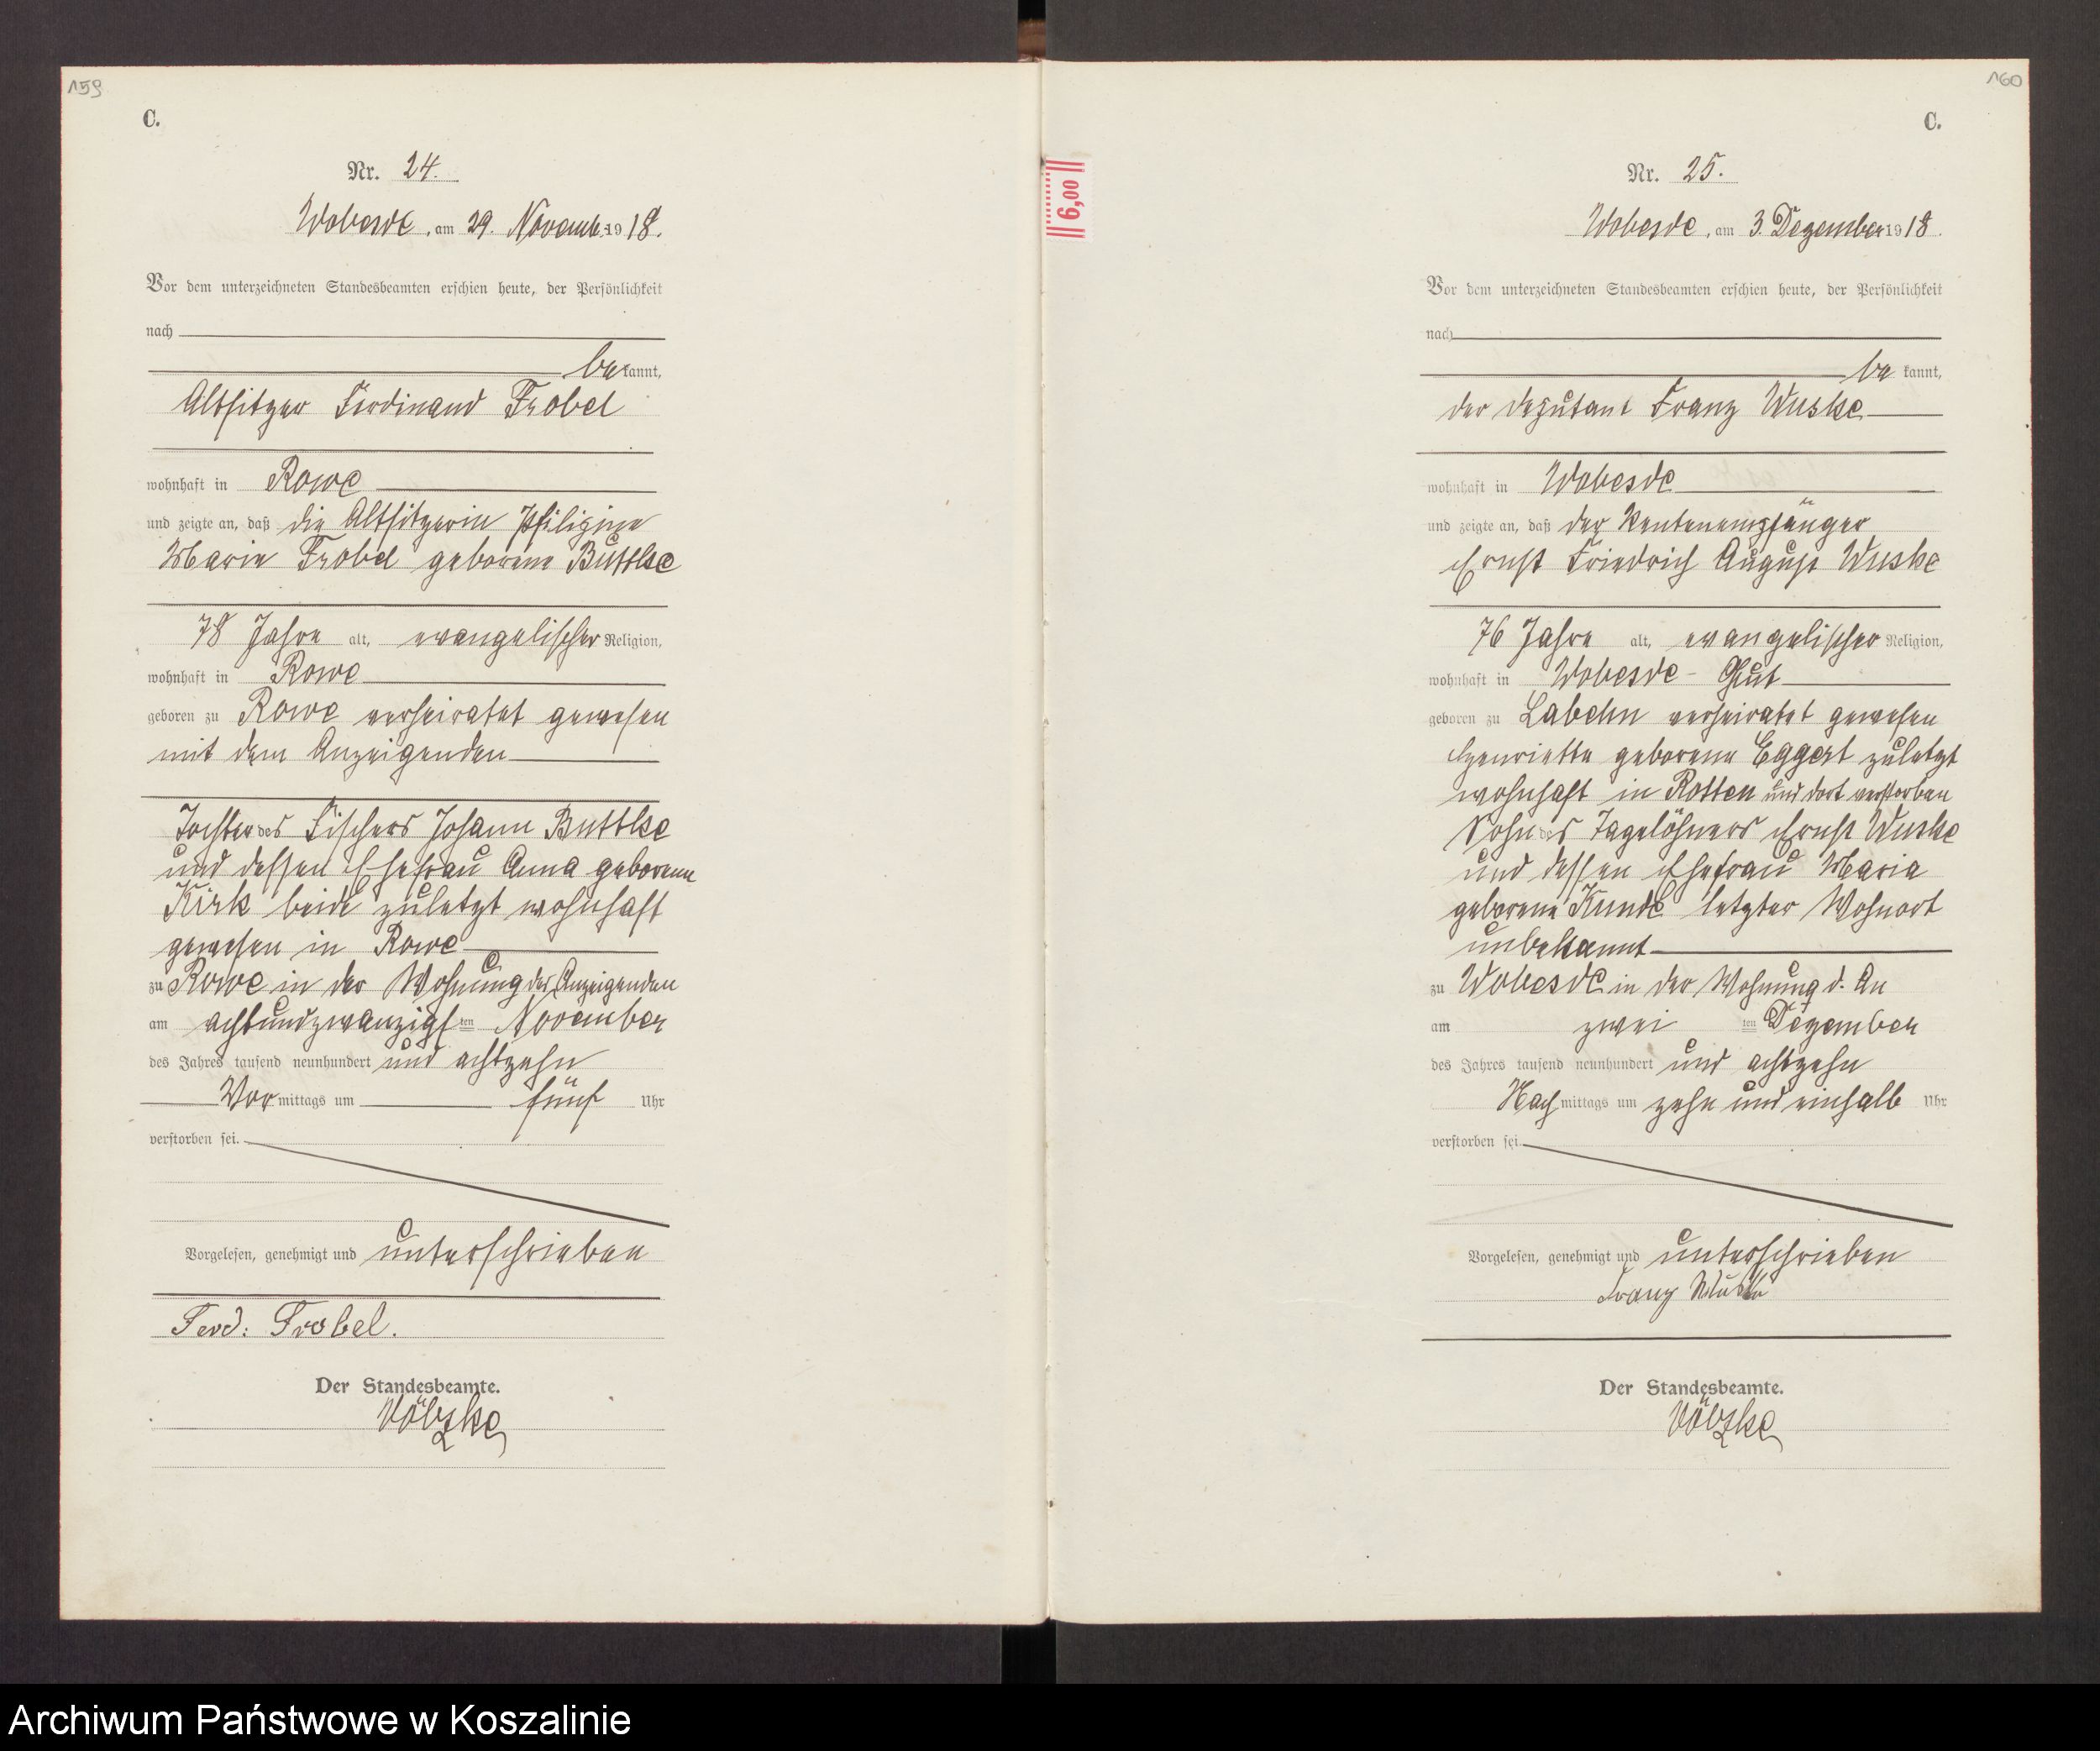 159
C.
Nr. 24.
Wobesde, am 29. Novemb. 1918.
Vor dem unterzeichneten Standesbeamten erschien heute, der Persönlichkeit
nach
bekannt,
Altsitzer Ferdinand Trobel
wohnhaft in Rowe
und zeigte an, daß die Altsitzerin
Marie Trobel geborene Buttke
78 Jahre alt, evangelischer Religion,
wohnhaft in Rowe
geboren zu Rowe verheiratet gewesen
mit dem Anzeigenden
Tochter des Fischers Johann Buttke
und dessen Ehefrau Anna geborene
Kirk beide zuletzt wohnhaft
gewesen in Rowe
zu Rowe in der Wohnung des Anzeigenden
am achtundzwanzigsten November
des Jahres tausend neunhundert und achtzehn
Vormittags um fünf Uhr
verstorben sei.
Vorgelesen, genehmigt und unterschrieben
Ferd: Trobel.
Der Standesbeamte.
Völzke
6,00
160
C.
Nr. 25.
Wobesde, am 3. Dezember 1918.
Vor dem unterzeichneten Standesbeamten erschien heute, der Persönlichkeit
nach
bekannt,
der Deputant Franz Wuske
wohnhaft in Wobesde
und zeigte an, daß der Rentenempfänger
Ernst Friedrich August Wuske
76 Jahre alt, evangelischer Religion,
wohnhaft in Wobesde - Gut
geboren zu Labehn verheiratet gewesen
Henriette geborene Eggert zuletzt
wohnhaft in Rotten und dort verstorben
Sohn des Tagelöhners Ernst Wuske
und dessen Ehefrau Maria
geborene Kunde letzter Wohnort
unbekannt
zu Wobesde in der Wohnung d. An
am zweiten Dezember
des Jahres tausend neunhundert und achtzehn
Nachmittags um zehn und einhalb Uhr
verstorben sei.
Vorgelesen, genehmigt und unterschrieben
Franz Wuske
Der Standesbeamte.
Völzke
Archiwum Państwowe w Koszalinie